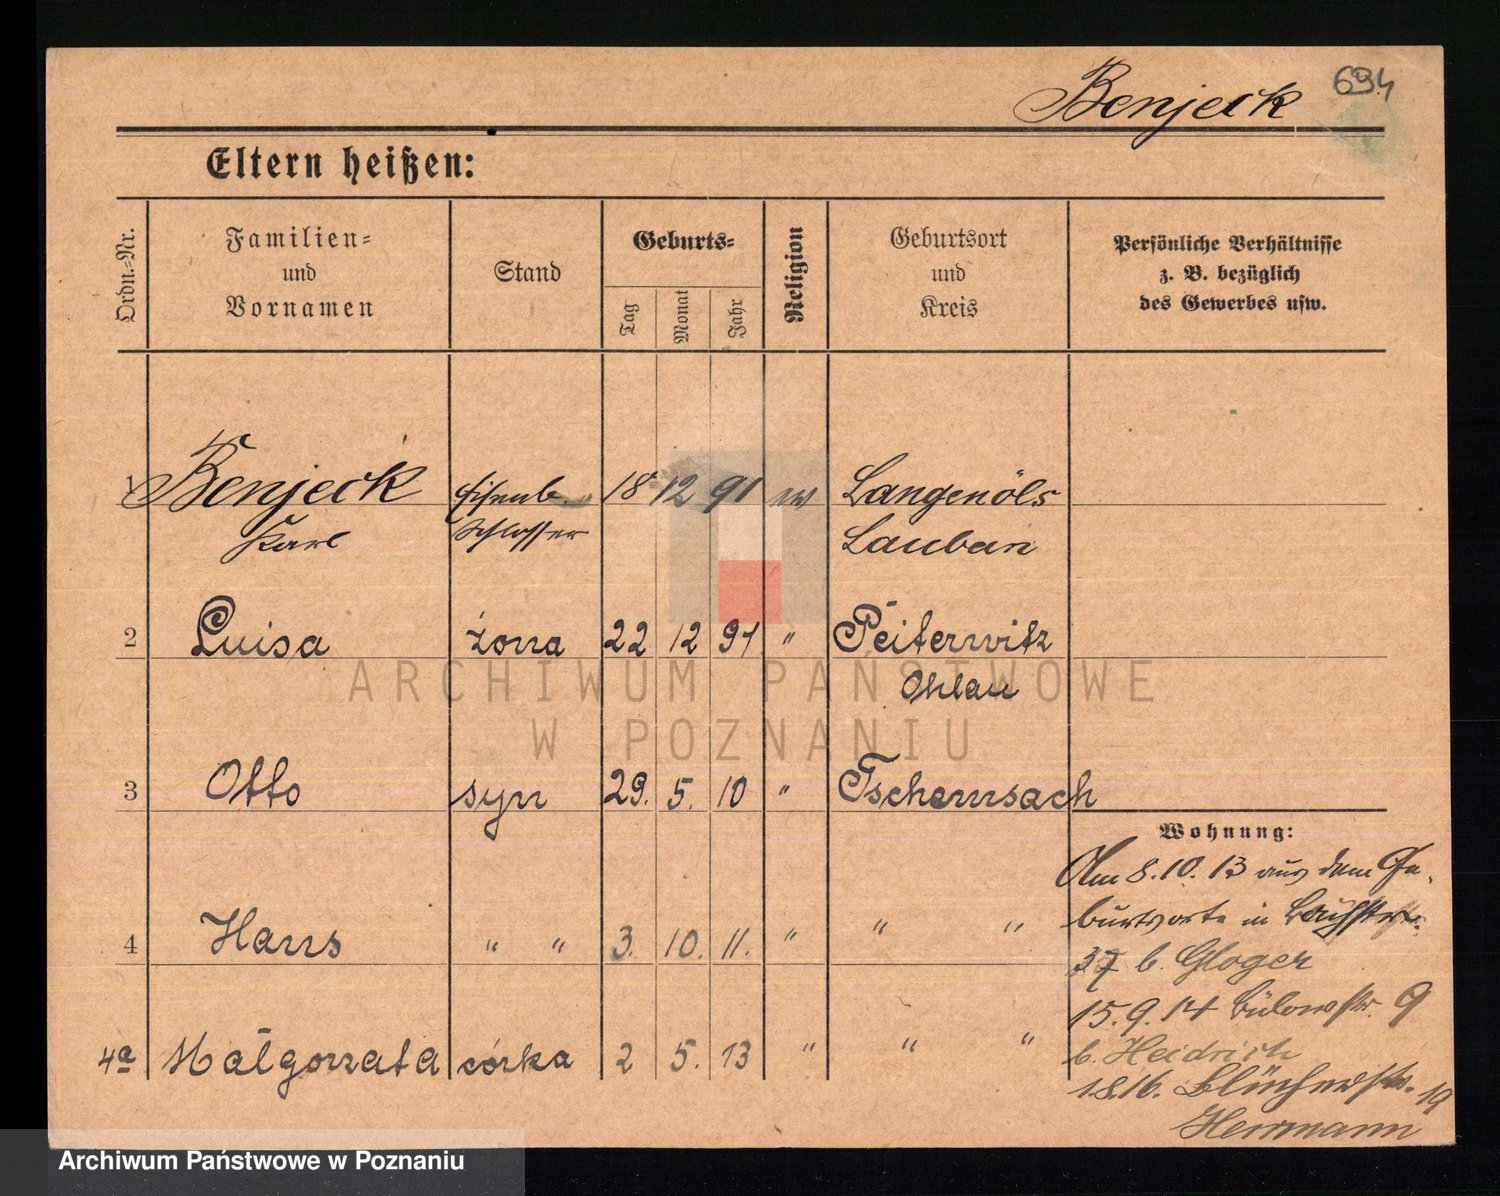 Benjeck
694
Eltern heißen:
Ordn.=Nr.
Familien=
und
Vornamen
Stand
Geburts=
Tag
Monat
Jahr
Religion
Geburtsort
und
Kreis
Persönliche Verhältnisse
z. B. bezüglich
des Gewerbes usw.
1 Benjeck Eisenb. 18 12 91 ev Langenöls
Karl Schlosser Lauban
2 Luisa żona 22 12 91 " Peiterwitz
Ohlau
3 Otto syn 29. 5. 10 " Tschernsach
Wohnung:
Am 8.10.13 aus dem Ge-
burtsorte in
4 Hans " " 3. 10. 11. " " "
37 b. Gloger
15.9.14 Bülowstr. 9
4a Małgorzata córka 2 5. 13 " " "
b. Heidrich
1.8.16. Blücherstr. 19
Herrmann
ARCHIWUM PAŃSTWOWE
W POZNANIU
Archiwum Państwowe w Poznaniu